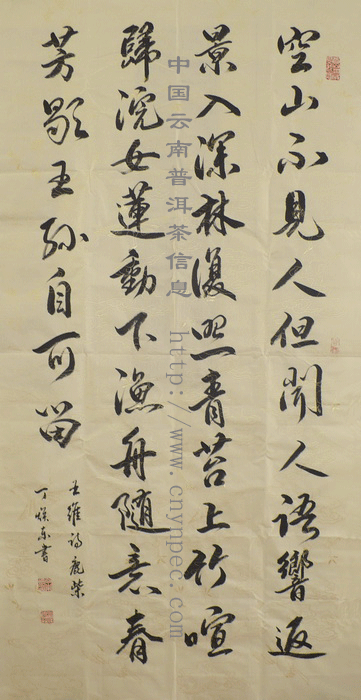 空山不見人但聞人語響返
景入深林復照青苔上竹喧
歸浣女蓮動下漁舟隨意春
芳歇王孫自可留
王維詩鹿柴
中国云南普洱茶信息 http://www.cnynpec.com